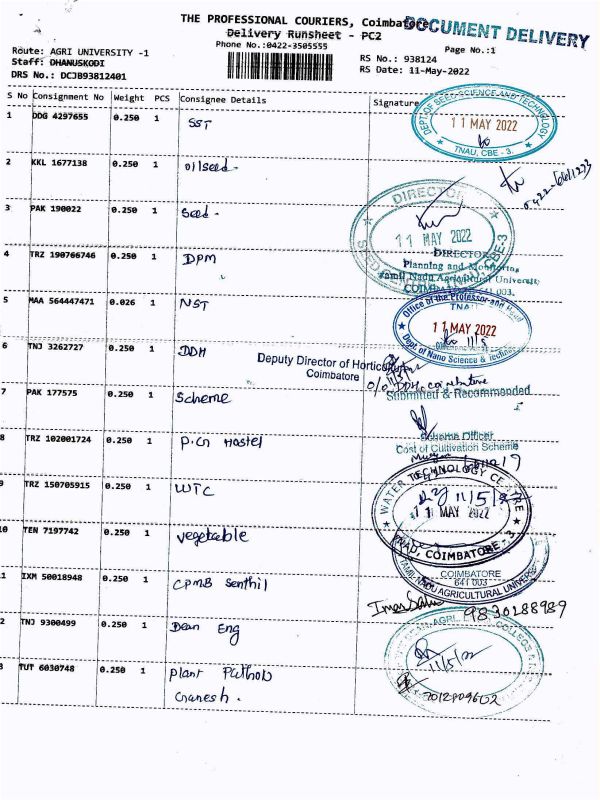 THE PROFESSIONAL COURIERS, Coimbatore
DOCUMENT DELIVERY
Delivery Runsheet - PC2
Phone No.:0422-3505555
Page No.:1
Route: AGRI UNIVERSITY -1
RS No.: 938124
Staff: DHANUSKODI
RS Date: 11-May-2022
DRS No.: DCJB93812401
S No Consignment No Weight PCS Consignee Details Signature
1 DDG 4297655 0.250 1 SST
DEPT. OF SEED SCIENCE AND TECHNOLOGY
11 MAY 2022
TNAU, CBE - 3.
2 KKL 1677138 0.250 1 oilseed -
3 PAK 190022 0.250 1 Seed -
DIRECTOR
11 MAY 2022
4 TRZ 190766746 0.250 1 DPM
DIRECTOR
Planning and Monitoring
Tamil Nadu Agricultural University
COIMBATORE 641 003.
5 MAA 564447471 0.026 1 NST
Office of the Professor and Head
TNAU
11 MAY 2022
Dept. of Nano Science & Technology
6 TNJ 3262727 0.250 1 DDH
Deputy Director of Horticulture
Coimbatore
O/o DDH, coimbatore
7 PAK 177575 0.250 1 Scheme
Submitted & Recommended
Scheme Officer
Cost of Cultivation Scheme
8 TRZ 102001724 0.250 1 P.G Hostel
9 TRZ 150705915 0.250 1 WTC
WATER TECHNOLOGY CENTRE
11/5/22
11 MAY 2022
TNAU, COIMBATORE - 3
10 TEN 7197742 0.250 1 vegetable
11 IXM 50018948 0.250 1 CPMB Senthil
COIMBATORE
641 003
TAMIL NADU AGRICULTURAL UNIVERSITY
9830288989
12 TNJ 9300499 0.250 1 Dean Eng
11/5/22
13 TUT 6030748 0.250 1 plant Pathob
Ganesh .